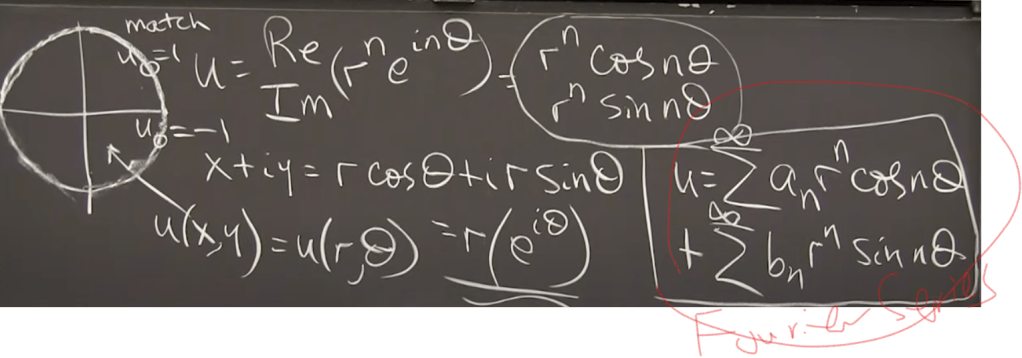 match
u₀=1
u = Re Im (rⁿ e^{inθ}) = rⁿ cos nθ rⁿ sin nθ
u₀=-1
x+iy = r cosθ + i r sinθ
u(x,y) = u(r,θ) = r(e^{iθ})
u = ∑^∞ aₙ rⁿ cos nθ
+ ∑^∞ bₙ rⁿ sin nθ
Fourier Series